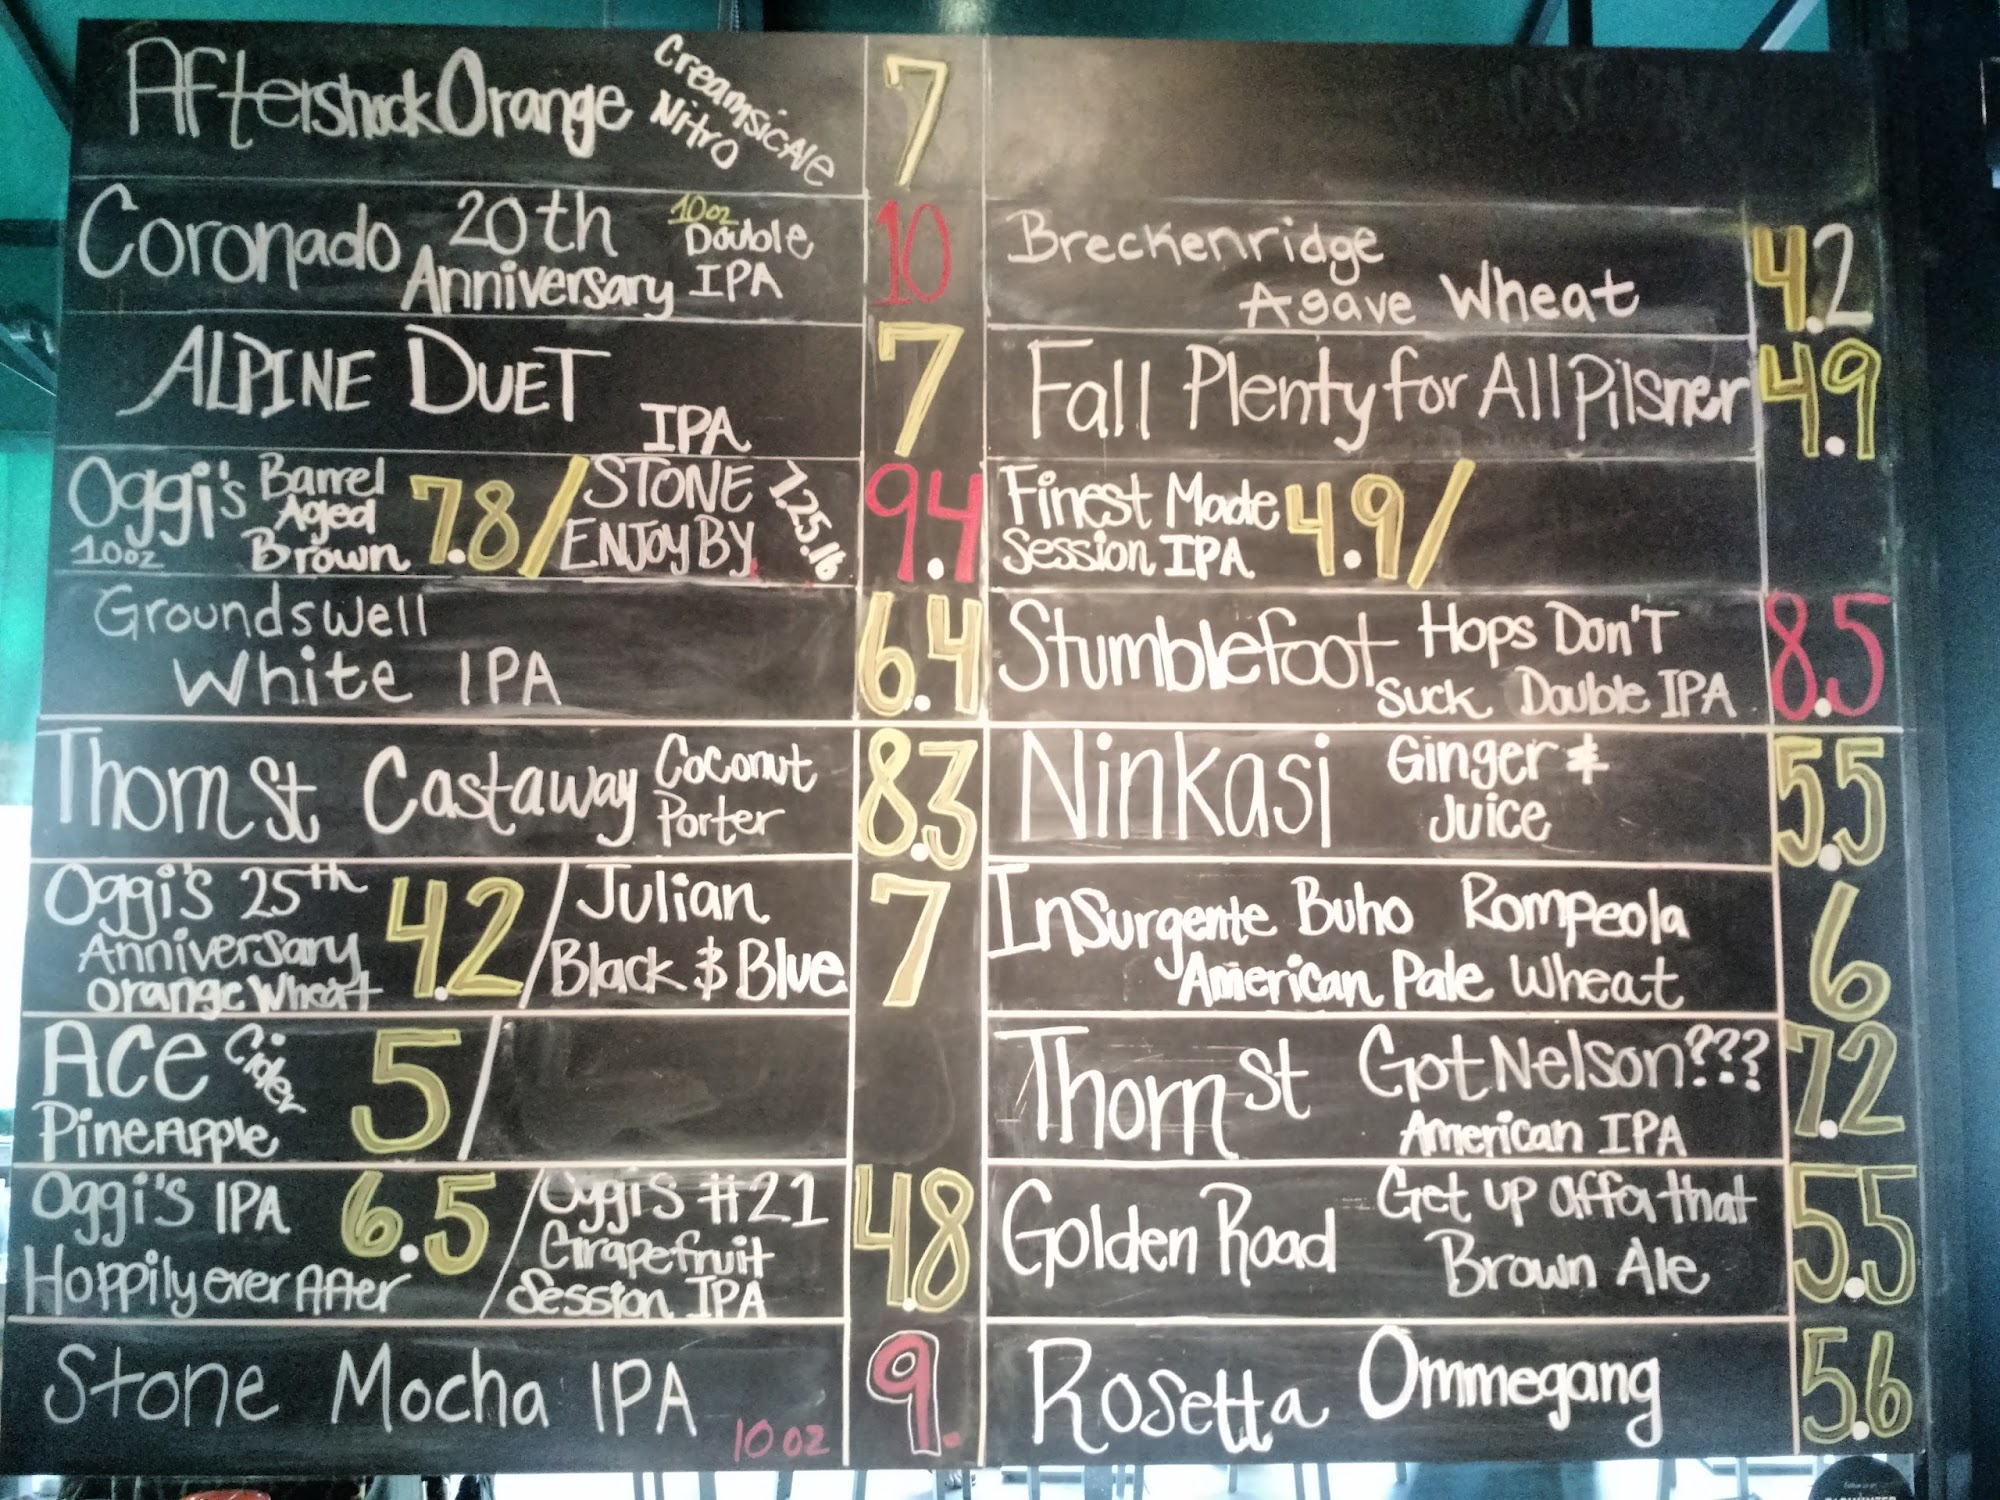 Aftershock Orange Creamsicale Nitro 7
Coronado 20th Anniversary 10oz Double IPA 10
ALPINE DUET IPA 7
Oggi's 10oz Barrel Aged Brown 7.8 / STONE ENJOY BY 7.25.16 9.4
Groundswell White IPA 6.4
Thorn St Castaway Coconut Porter 8.3
Oggi's 25th Anniversary Orange Wheat 4.2 / Julian Black & Blue 7
Ace Pineapple Cider 5 /
Oggi's IPA Hoppily ever After 6.5 / Oggi's #21 Grapefruit Session IPA 4.8
Stone Mocha IPA 10oz 9.
Breckenridge Agave Wheat 4.2
Fall Plenty for All Pilsner 4.9
Finest Made Session IPA 4.9 /
Stumblefoot Hops Don't Suck Double IPA 8.5
Ninkasi Ginger & Juice 5.5
Insurgente Buho Rompeola American Pale Wheat 6
Thorn St Got Nelson??? American IPA 7.2
Golden Road Get up offa that Brown Ale 5.5
Rosetta Ommegang 5.6